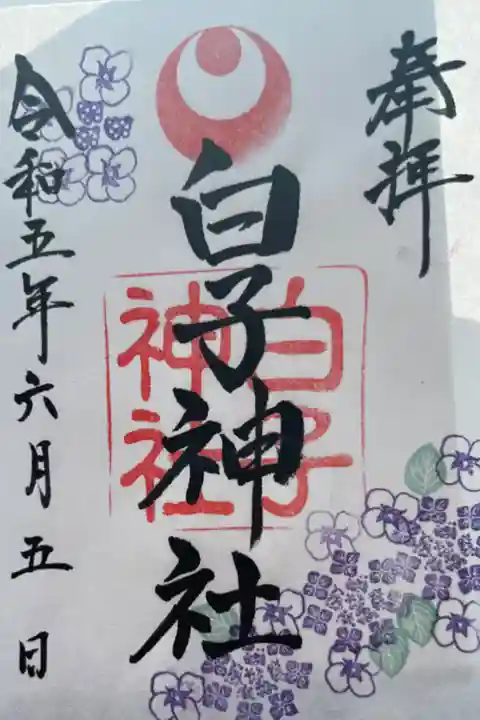 奉拝
白子神社
白子
神社
令和五年六月五日